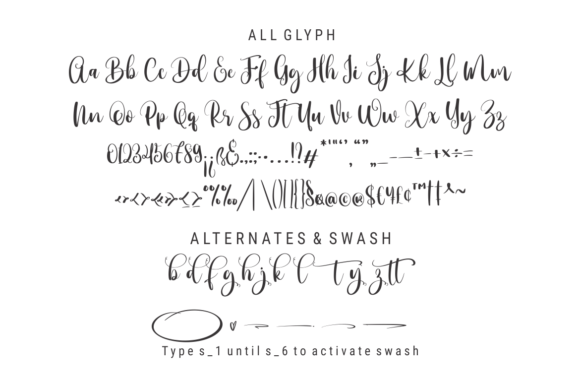 ALL GLYPH
Aa Bb Cc Dd Ee Ff Gg Hh Ii Jj Kk Ll Mm
Nn Oo Pp Qq Rr Ss Tt Uu Vv Ww Xx Yy Zz
0123456789¡¿ß&.,:;·-…!?#*"'‘’“”‚„_—–-±+×÷=
«‹›»<>≤≥%‰/|\()[]{}§&@©®$€¥£¢™†‡^~
ALTERNATES & SWASH
b d f g h j k l t y z tt
Type s_1 until s_6 to activate swash